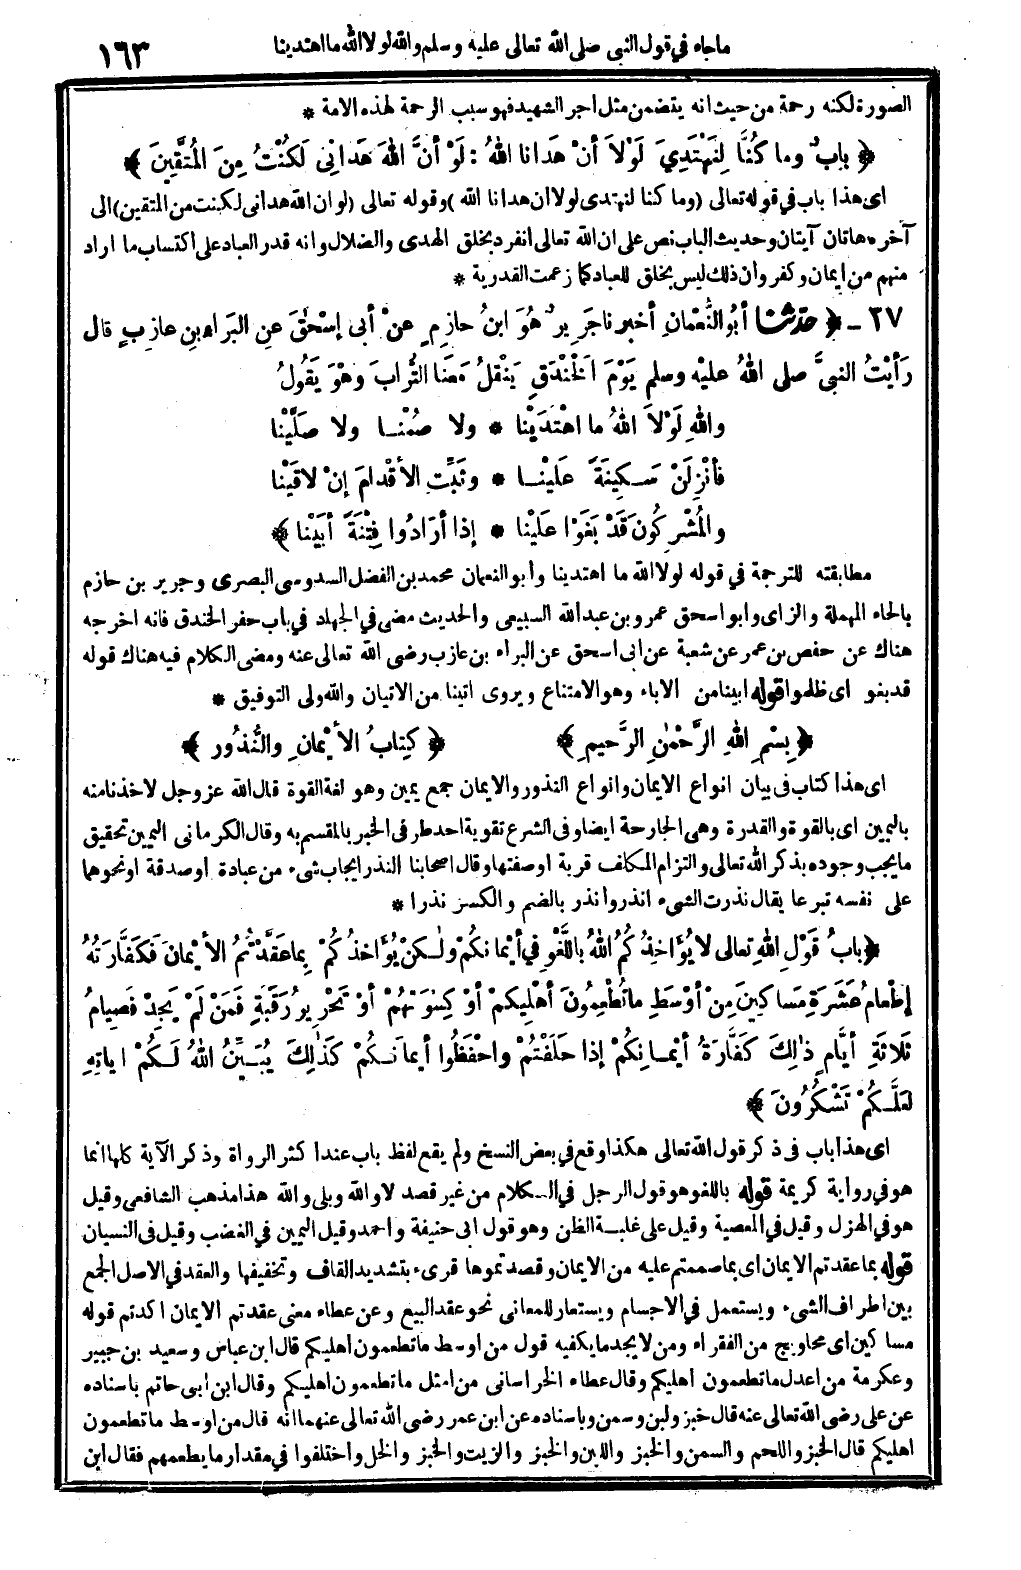 ماجاء في قول النبي صلى الله تعالى عليه وسلم والله لولا الله ما اهتدينا
١٦٣
الصورة لكنه رحمة من حيث انه يتضمن مثل اجر الشهيد فهو سبب الرحمة لهذه الامة *
﴿ بابٌ وما كُنَّا لِنَهْتَدِيَ لَوْلاَ أنْ هَدانا اللهُ : لَوْ أنَّ اللهَ هَدانِي لَكُنْتُ مِنَ المُتَّقِينَ ﴾
اى هذا باب في قوله تعالى (وما كنا لنهتدى لولا ان هدانا الله) وقوله تعالى (لو ان الله هدانى لكنت من المتقين) الى
آخره هاتان آيتان وحديث الباب نص على ان الله تعالى انفرد بخلق الهدى والضلال وانه قدر العباد على اكتساب ما اراد
منهم من ايمان وكفر وان ذلك ليس بخلق للعباد كما زعمت القدرية *
٢٧ - ﴿ حدثنا أبُو النُّعْمانِ أخبرنا جَرِيرٌ هُوَ ابنُ حازِمٍ عنْ أبى إسْحٰقَ عنِ البَراءِ بنِ عازِبٍ قال
رَأيْتُ النبيَّ صلى اللهُ عليْه وسلم يَوْمَ الخَنْدَقِ يَنْقُلُ مَعَنا التُّرابَ وهْوَ يَقُولُ
واللهِ لَوْلاَ اللهُ ما اهْتَدَيْنا * ولا صُمْنا ولا صَلَّيْنا
فأنْزِلَنْ سَكِينَةً عَلَيْنا * وثَبِّتِ الأقْدامَ إنْ لاقَيْنا
والمُشْرِكُونَ قَدْ بَغَوْا عَلَيْنا * إذا أرَادُوا فِتْنَةً أبَيْنا ﴾
مطابقته للترجمة في قوله لولا الله ما اهتدينا وأبو النعمان محمد بن الفضل السدوسى البصرى وجرير بن حازم
بالحاء المهملة والزاى وابو اسحق عمرو بن عبد الله السبيعى والحديث مضى في الجهاد في باب حفر الخندق فانه اخرجه
هناك عن حفص بن عمر عن شعبة عن ابى اسحق عن البراء بن عازب رضى الله تعالى عنه ومضى الكلام فيه هناك قوله
قد بغو اى ظلموا قوله ابينا من الاباء وهو الامتناع ويروى اتينا من الاتيان والله ولى التوفيق *
﴿ بِسْمِ اللهِ الرَّحْمٰنِ الرَّحِيمِ ﴾ ﴿ كِتابُ الأيْمانِ والنُّذُورِ ﴾
اى هذا كتاب فى بيان انواع الايمان وانواع النذور والايمان جمع يمين وهو لغة القوة قال الله عز وجل لاخذنا منه
باليمين اى بالقوة والقدرة وهى الجارحة ايضا وفى الشرع تقوية احد طرفى الخبر بالمقسم به وقال الكرمانى اليمين تحقيق
ما يجب وجوده بذكر الله تعالى والتزام المكلف قربة او صفتها وقال اصحابنا النذر ايجاب شىء من عبادة او صدقة او نحوهما
على نفسه تبرعا يقال نذرت الشىء انذر وانذر بالضم والكسر نذرا *
﴿ بابُ قَوْلِ اللهِ تعالى لا يُؤَاخِذُكُمُ اللهُ بِاللَّغْوِ في أيْمانِكُمْ ولٰكِنْ يُؤَاخِذُكُمْ بِما عَقَّدْتُمُ الأيْمانَ فَكَفَّارَتُهُ
إطْعامُ عَشَرَةِ مَساكِينَ مِنْ أوْسَطِ ما تُطْعِمُونَ أهْلِيكُمْ أوْ كِسْوَتُهُمْ أوْ تَحْرِيرُ رَقَبَةٍ فَمَنْ لَمْ يَجِدْ فَصِيامُ
ثَلاثَةِ أيَّامٍ ذٰلِكَ كَفَّارَةُ أيْمانِكُمْ إذا حَلَفْتُمْ واحْفَظُوا أيمانَكُمْ كَذٰلِكَ يُبَيِّنُ اللهُ لَكُمْ اياتِهِ
لعَلَّكُمْ تَشْكُرُونَ ﴾
اى هذا باب فى ذكر قول الله تعالى هكذا وقع في بعض النسخ ولم يقع لفظ باب عند اكثر الرواة وذكر الآية كلها انما
هو في رواية كريمة قوله باللغو هو قول الرجل في الكلام من غير قصد لا والله وبلى والله هذا مذهب الشافعى وقيل
هو في الهزل وقيل في المعصية وقيل على غلبة الظن وهو قول ابى حنيفة واحمد وقيل اليمين في الغضب وقيل فى النسيان
قوله بما عقدتم الايمان اى بما صممتم عليه من الايمان وقصدتموها قرىء بتشديد القاف وتخفيفها والعقد في الاصل الجمع
بين اطراف الشىء ويستعمل في الاجسام ويستعار للمعانى نحو عقد البيع وعن عطاء معنى عقدتم الايمان اكدتم قوله
مساكين اى محاويج من الفقراء ومن لا يجد ما يكفيه قول من اوسط ما تطعمون اهليكم قال ابن عباس وسعيد بن جبير
وعكرمة من اعدل ما تطعمون اهليكم وقال عطاء الخراسانى من امثل ما تطعمون اهليكم وقال ابن ابى حاتم باسناده
عن على رضى الله تعالى عنه قال خبز ولبن وسمن وباسناده عن ابن عمر رضى الله تعالى عنهما انه قال من اوسط ما تطعمون
اهليكم قال الخبز واللحم والسمن والخبز واللبن والخبز والزيت والخبز والخل واختلفوا في مقدار ما يطعمهم فقال ابن